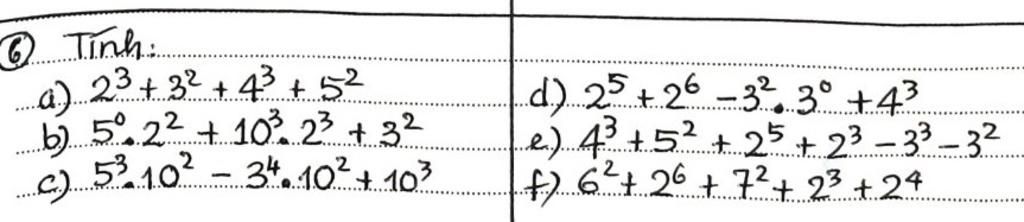 ⑥ Tính:
a) 2³ + 3² + 4³ + 5²
b) 5⁰.2² + 10³.2³ + 3²
c) 5³.10² - 3⁴.10² + 10³
d) 2⁵ + 2⁶ - 3².3⁰ + 4³
e) 4³ + 5² + 2⁵ + 2³ - 3³ - 3²
f) 6² + 2⁶ + 7² + 2³ + 2⁴